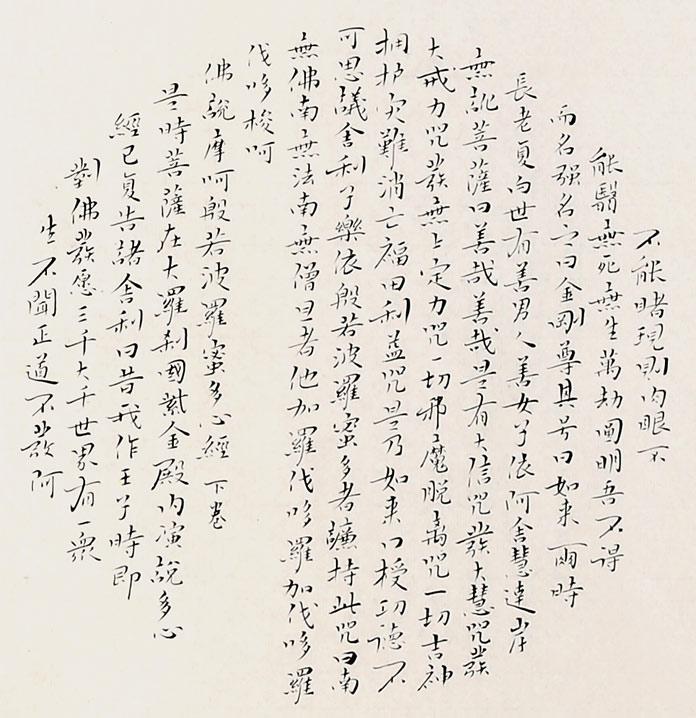 不能睹現則肉眼不
能翳無死無生萬劫闡明吾不得
而名强名之曰金剛尊其号曰如来 爾時
長老复白世有善男人善女子依阿含慧達岸
無訛菩薩曰善哉善哉是有大信咒發大慧咒發
大戒力咒發無上定力咒一切邪魔脱离咒一切吉神
拥护灾難消亡福田利益咒是乃如来口授功德不
可思議舍利子樂依般若波羅蜜多者 持此咒曰南
無佛南無法南無僧旦者他加羅伐哆羅加伐哆羅
伐哆梭呵
佛說摩呵般若波羅蜜多心經 下卷
是時菩薩在大羅刹國紫金殿内演說多心
經已复告諸舍利曰昔我作王子時即
對佛發愿三千大千世界有一衆
生不聞正道不發阿